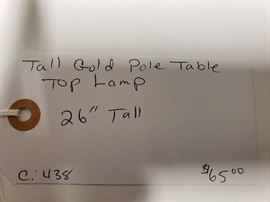 Tall Gold Pole Table
Top Lamp
26" Tall
C: 438 $65.00